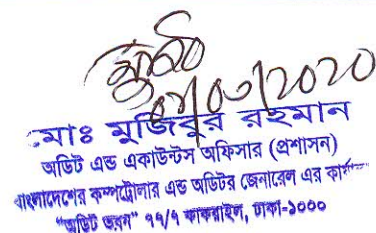 ০৭/০৬/২০২০
মোঃ মুজিবুর রহমান
অডিট এন্ড একাউন্টস অফিসার (প্রশাসন)
বাংলাদেশের কম্পট্রোলার এন্ড অডিটর জেনারেল এর
"অডিট ভবন" ৭৭/৭ কাকরাইল, ঢাকা-১০০০